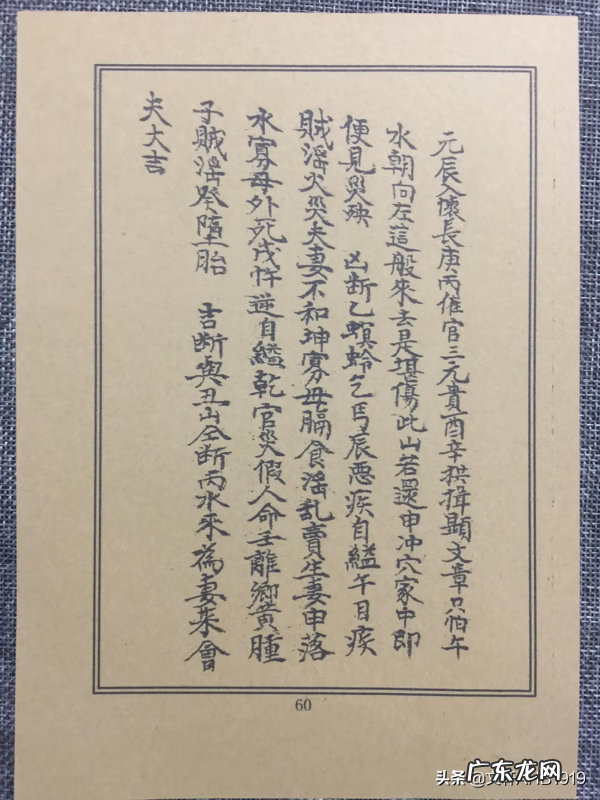 元辰入懷長庚丙催官三元貴酉辛拱揖顯文章只怕午
水朝向左這般來去是堪傷此山若還申冲穴家中即
便見災殃 凶断乙螟蛉乞丐辰惡疾自縊午目疾
賊淫火災夫妻不和坤寡母膈食淫乱賣生妻申落
水寡母外死戌忤逆自縊乾官災假人命壬離鄉黄腫
子賊淫癸墮胎 吉断與丑山仝断丙水來為妻會
夫大吉
60
头条
广东龙网